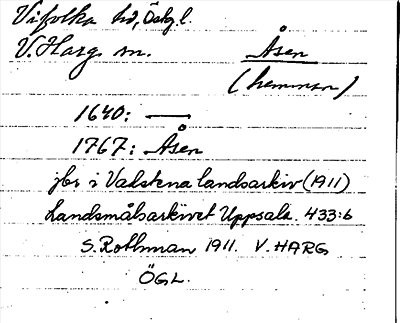 Vifolka hd, Östg.l.
V. Harg sn. Åsen
(hemman)
1640: —
1767: Åsen
jbr i Vadstena landsarkiv (1911)
Landsmålsarkivet Uppsala. 433:6
S. Rothman 1911. V. HARG
ÖGL.